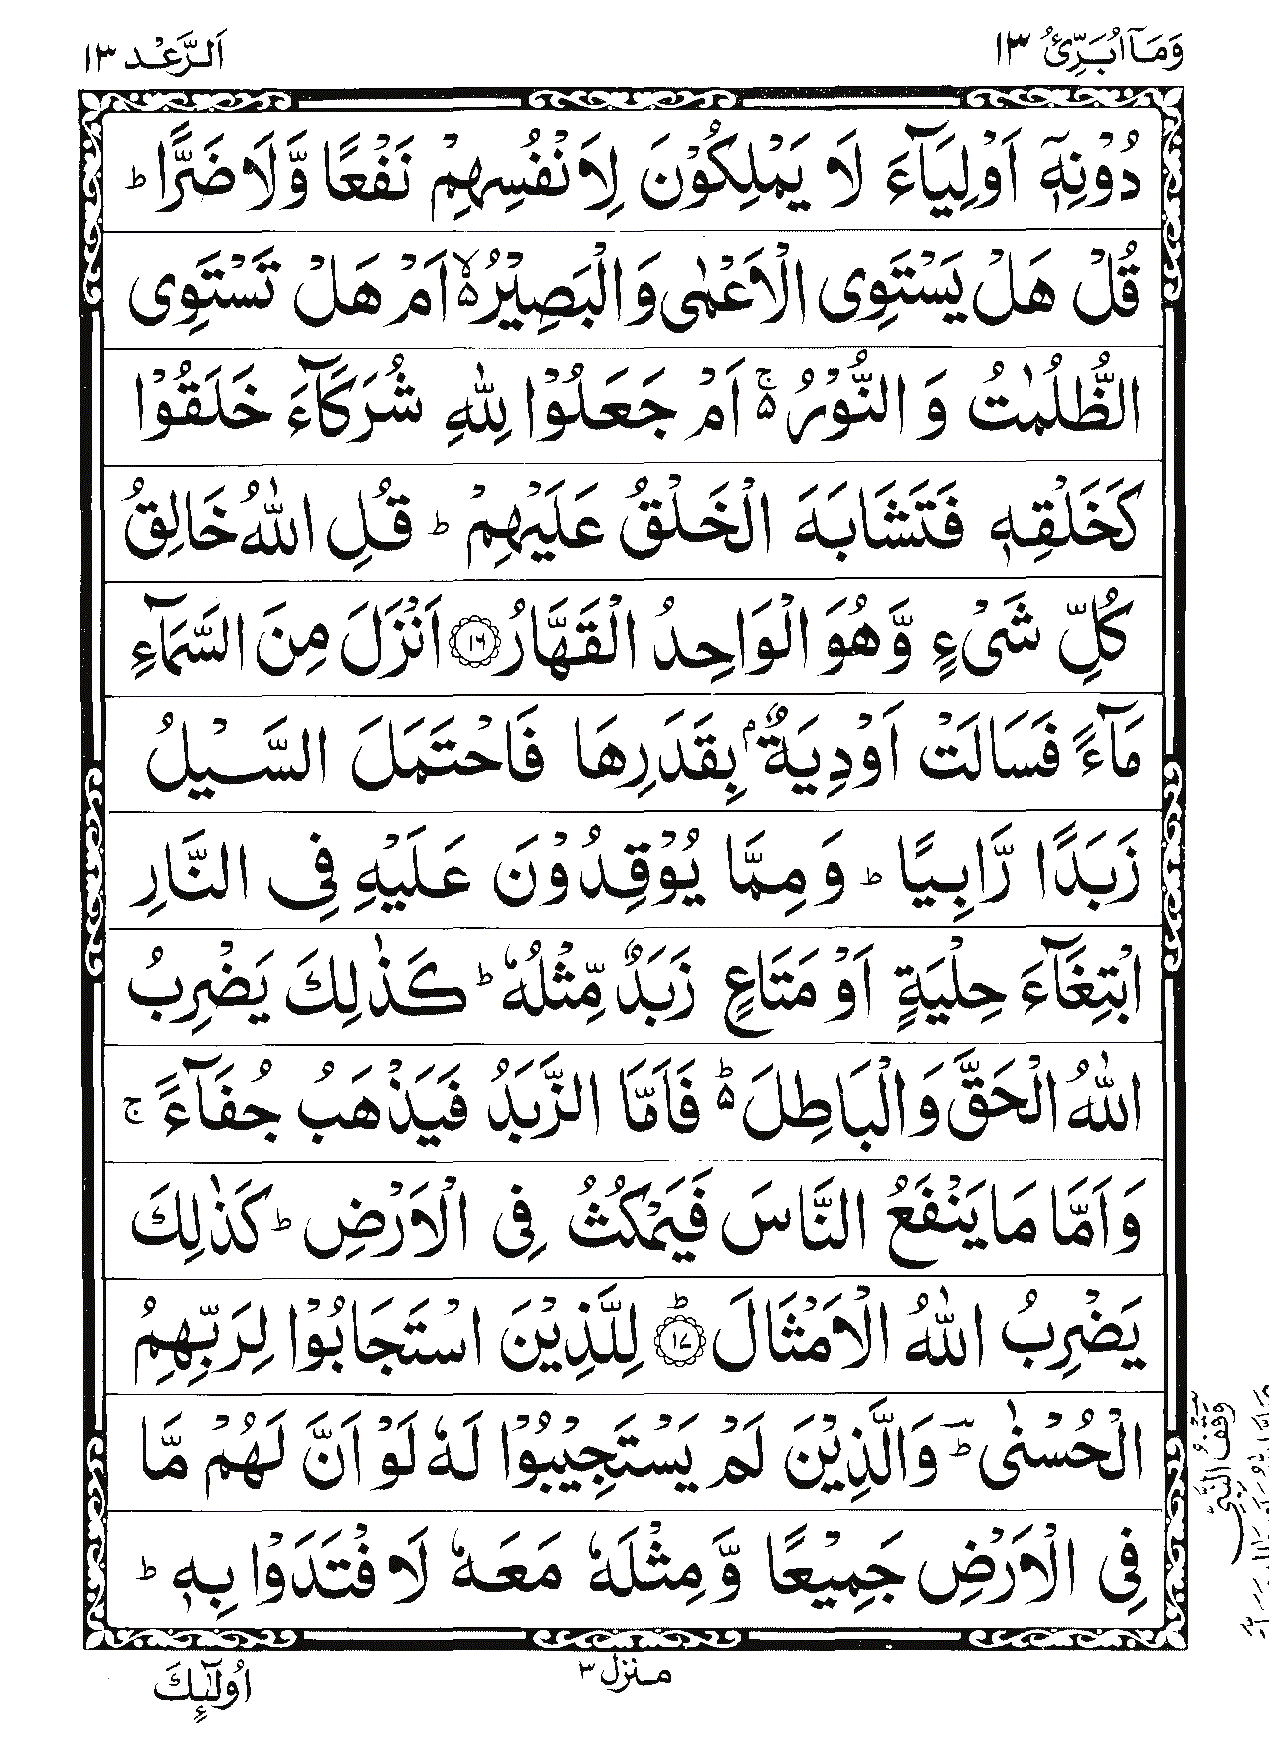 وَمَآ اُبَرِّئُ ١٣
اَلرَّعْد ١٣
دُوْنِهٖۤ اَوْلِيَآءَ لَا يَمْلِكُوْنَ لِاَنْفُسِهِمْ نَفْعًا وَّلَا ضَرًّا ؕ
قُلْ هَلْ يَسْتَوِى الْاَعْمٰى وَالْبَصِيْرُ ۙ۬ اَمْ هَلْ تَسْتَوِى
الظُّلُمٰتُ وَ النُّوْرُ ۚ۬ اَمْ جَعَلُوْا لِلّٰهِ شُرَكَآءَ خَلَقُوْا
كَخَلْقِهٖ فَتَشَابَهَ الْخَلْقُ عَلَيْهِمْ ؕ قُلِ اللّٰهُ خَالِقُ
كُلِّ شَىْءٍ وَّهُوَ الْوَاحِدُ الْقَهَّارُ ١٦ اَنْزَلَ مِنَ السَّمَآءِ
مَآءً فَسَالَتْ اَوْدِيَةٌۢ بِقَدَرِهَا فَاحْتَمَلَ السَّيْلُ
زَبَدًا رَّابِيًا ؕ وَمِمَّا يُوْقِدُوْنَ عَلَيْهِ فِى النَّارِ
ابْتِغَآءَ حِلْيَةٍ اَوْ مَتَاعٍ زَبَدٌ مِّثْلُهٗ ؕ كَذٰلِكَ يَضْرِبُ
اللّٰهُ الْحَقَّ وَالْبَاطِلَ ؕ۬ فَاَمَّا الزَّبَدُ فَيَذْهَبُ جُفَآءً ۚ
وَاَمَّا مَا يَنْفَعُ النَّاسَ فَيَمْكُثُ فِى الْاَرْضِ ؕ كَذٰلِكَ
يَضْرِبُ اللّٰهُ الْاَمْثَالَ ؕ ١٧ لِلَّذِيْنَ اسْتَجَابُوْا لِرَبِّهِمُ
الْحُسْنٰى ؔؕ وَالَّذِيْنَ لَمْ يَسْتَجِيْبُوْا لَهٗ لَوْ اَنَّ لَهُمْ مَّا
فِى الْاَرْضِ جَمِيْعًا وَّمِثْلَهٗ مَعَهٗ لَافْتَدَوْا بِهٖ ؕ
وقف النبي
منزل ٣
اُولٰٓئِكَ